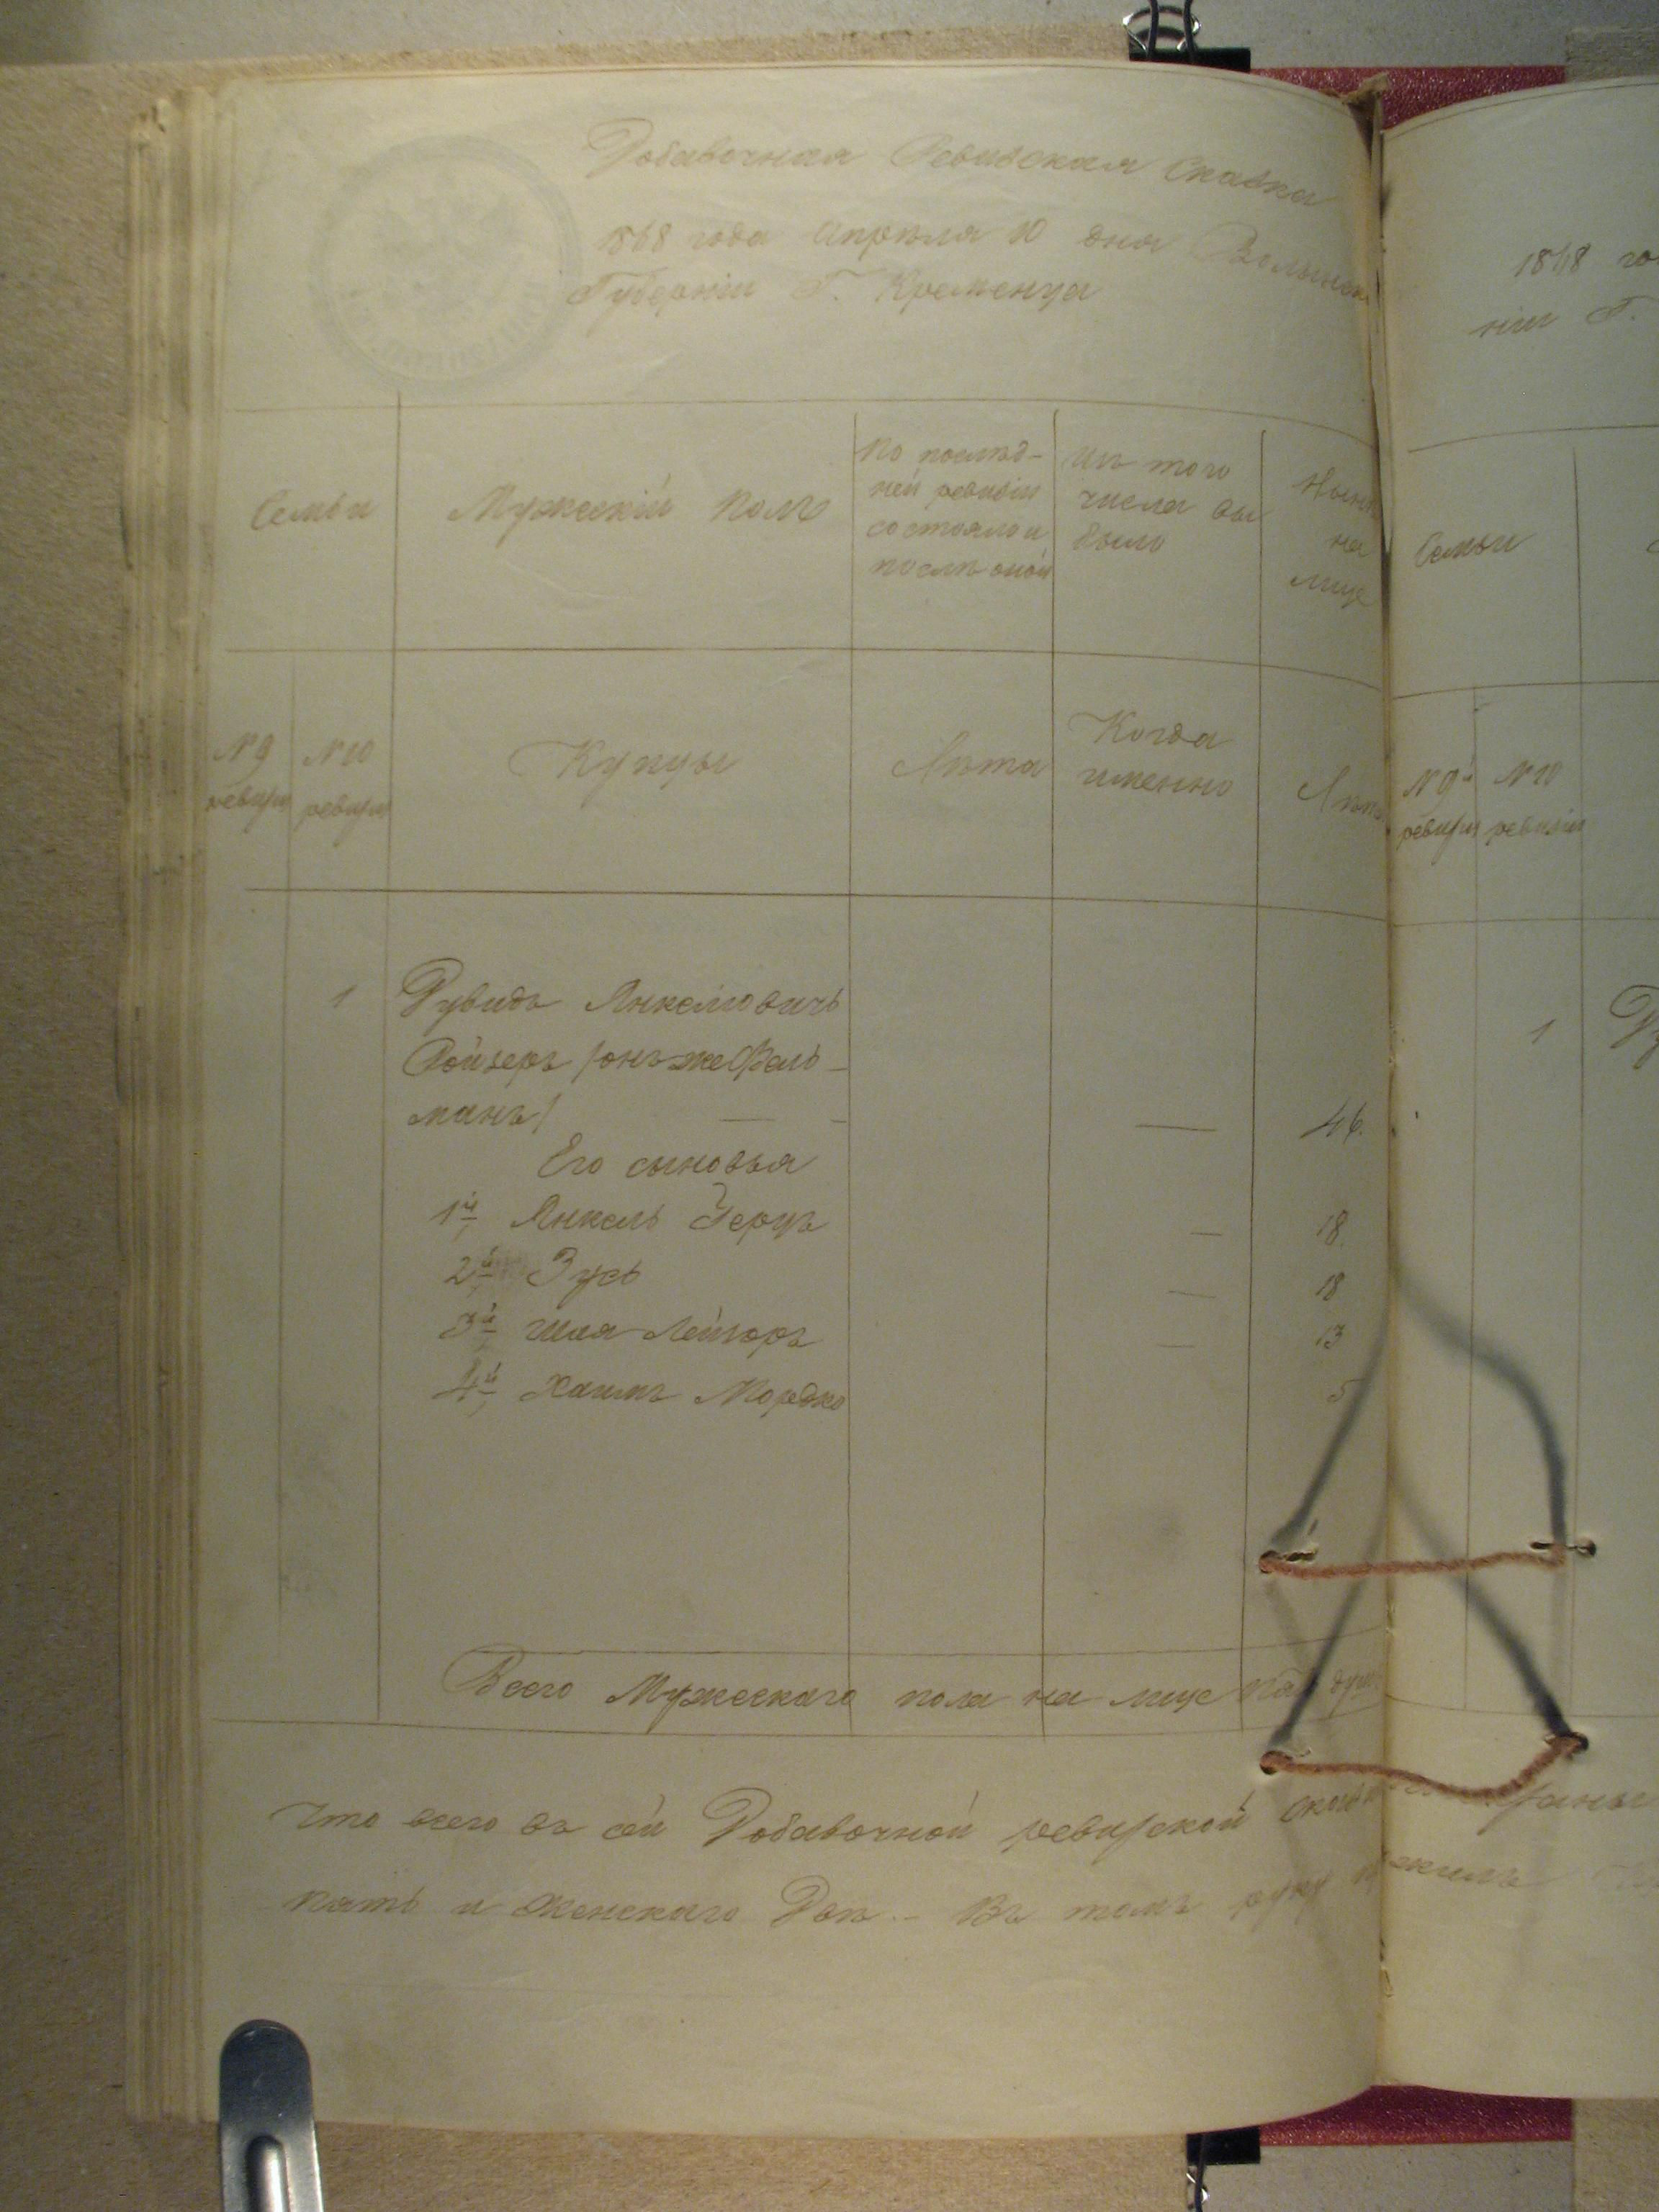 Добавочная Ревизская Сказка
1868 года Апрѣля 10 дня Волынской
Губерніи Г. Кременца
Семьи
Мужескій Полъ
По послѣд-
ней ревизіи
состояло и
послѣ оной
Изъ того
числа вы
было
Нынѣ
на
лице
№ 9
ревизіи
№ 10
ревизіи
Купцы
Лѣта
Когда
именно
Лѣта
1 Дувидъ Янкелювичъ
Ройзеръ /онъ же Фель-
манъ/ — - — 46.
Его сыновья
1й Янкель Герцъ — 18.
2й Зусь — 18
3й Шая Лейзоръ — 13
4й Хаимъ Мордко 5
Всего Мужескаго пола на лице пять душъ
Что всего въ сей Добавочной ревизской
пять и Женскаго Двѣ. - Въ томъ руку
1868 го
ніи Г.
Семьи
№ 9й
ревизіи
№ 10
ревизіи
1